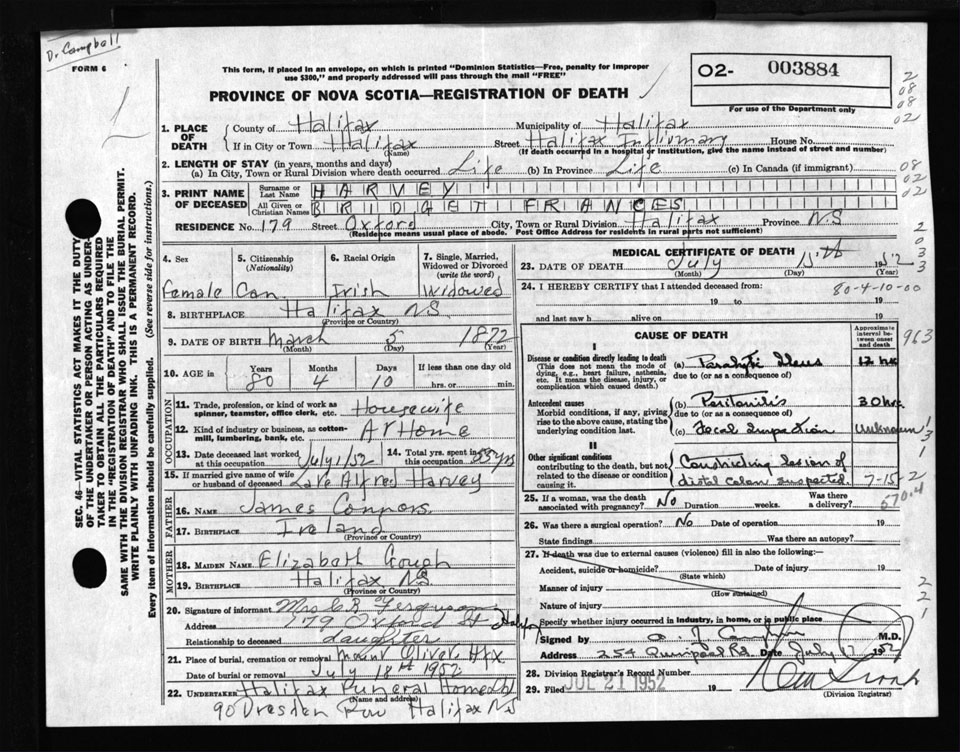 Dr Campbell
FORM 6
This form, if placed in an envelope, on which is printed "Dominion Statistics—Free, penalty for improper
use $300," and properly addressed will pass through the mail "FREE"
PROVINCE OF NOVA SCOTIA—REGISTRATION OF DEATH
02- 003884
For use of the Department only
2
08
08
02
1. PLACE OF DEATH
County of Halifax Municipality of Halifax
If in City or Town Halifax Street Halifax Infirmary House No.
(Name) (If death occurred in a hospital or institution, give the name instead of street and number)
2. LENGTH OF STAY (in years, months and days)
(a) In City, Town or Rural Division where death occurred Life (b) In Province Life (c) In Canada (if immigrant)
08
02
02
3. PRINT NAME OF DECEASED
Surname or Last Name HARVEY
All Given or Christian Names BRIDGET FRANCES
RESIDENCE No. 179 Street Oxford City, Town or Rural Division Halifax Province N.S
(Residence means usual place of abode. Post Office Address for residents in rural parts not sufficient)
2
0
3
3
SEC. 46—VITAL STATISTICS ACT MAKES IT THE DUTY
OF THE UNDERTAKER OR PERSON ACTING AS UNDER-
TAKER TO OBTAIN ALL THE PARTICULARS REQUIRED
IN THE "REGISTRATION OF DEATH" AND TO FILE THE
SAME WITH THE DIVISION REGISTRAR WHO SHALL ISSUE THE BURIAL PERMIT.
WRITE PLAINLY WITH UNFADING INK. THIS IS A PERMANENT RECORD.
Every item of information should be carefully supplied. (See reverse side for instructions.)
4. Sex
5. Citizenship (Nationality)
6. Racial Origin
7. Single, Married, Widowed or Divorced (write the word)
Female Can. Irish Widowed
8. BIRTHPLACE Halifax N.S
(Province or Country)
9. DATE OF BIRTH March 5 1872
(Month) (Day) (Year)
10. AGE in
Years Months Days If less than one day old
80 4 10 hrs. or min.
OCCUPATION
11. Trade, profession, or kind of work as
spinner, teamster, office clerk, etc. Housewife
12. Kind of industry or business, as cotton-
mill, lumbering, bank, etc. At Home
13. Date deceased last worked
at this occupation July 1/52
14. Total yrs. spent in
this occupation 55 yrs
15. If married give name of wife
or husband of deceased Late Alfred Harvey
FATHER
16. Name James Connors
17. Birthplace Ireland
(Province or Country)
MOTHER
18. MAIDEN NAME Elizabeth Gough
19. BIRTHPLACE Halifax N.S.
(Province or Country)
20. Signature of informant Mrs C B Ferguson
Address 179 Oxford St Halifax
Relationship to deceased daughter
21. Place of burial, cremation or removal Mount Olivet Hfx
Date of burial or removal July 18th 1952
22. UNDERTAKER Halifax Funeral Home Ltd
(Name and address)
90 Dresden Row Halifax N.S
MEDICAL CERTIFICATE OF DEATH
23. DATE OF DEATH July 15th 1952
(Month) (Day) (Year)
24. I HEREBY CERTIFY that I attended deceased from: 80-4-10-00
19 to 19
and last saw h alive on 19
CAUSE OF DEATH
Approximate interval between onset and death
963
I
Disease or condition directly leading to death
(This does not mean the mode of
dying, e.g., heart failure, asthenia,
etc. It means the disease, injury, or
complication which caused death.)
(a) Paralytic Ileus 12 hrs
due to (or as a consequence of)
Antecedent causes
Morbid conditions, if any, giving
rise to the above cause, stating the
underlying condition last.
(b) Peritonitis 30 hrs.
due to (or as a consequence of)
(c) Fecal Impaction Unknown
1
3
1
II
Other significant conditions
contributing to the death, but not
related to the disease or condition
causing it.
Constricting lesion of
distal colon suspected. 7-15-2
570.4
25. If a woman, was the death
associated with pregnancy? No Duration weeks. Was there a delivery?
26. Was there a surgical operation? No Date of operation 19
State findings Was there an autopsy?
27. If death was due to external causes (violence) fill in also the following:—
Accident, suicide or homicide? Date of injury 19
(State which)
Manner of injury
(How sustained)
Nature of injury
2
2
1
Specify whether injury occurred in industry, in home, or in public place
Signed by M.D.
Address 254 Quinpool Rd. Date July 17 1952
28. Division Registrar's Record Number
29. Filed JUL 21 1952 19
(Division Registrar)